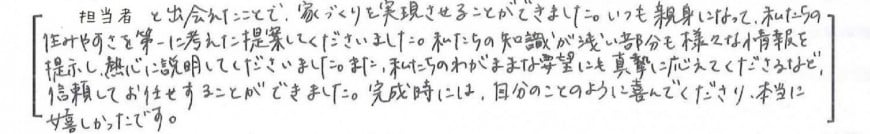 担当者 と出会えたことで、家づくりを実現させることができました。いつも親身になって、私たちの
住みやすさを第一に考えた提案してくださいました。私たちの知識が浅い部分も様々な情報を
提示し、熱心に説明してくださいました。また、私たちのわがままな要望にも真摯に応えてくださるなど、
信頼してお任せすることができました。完成時には、自分のことのように喜んでくださり、本当に
嬉しかったです。